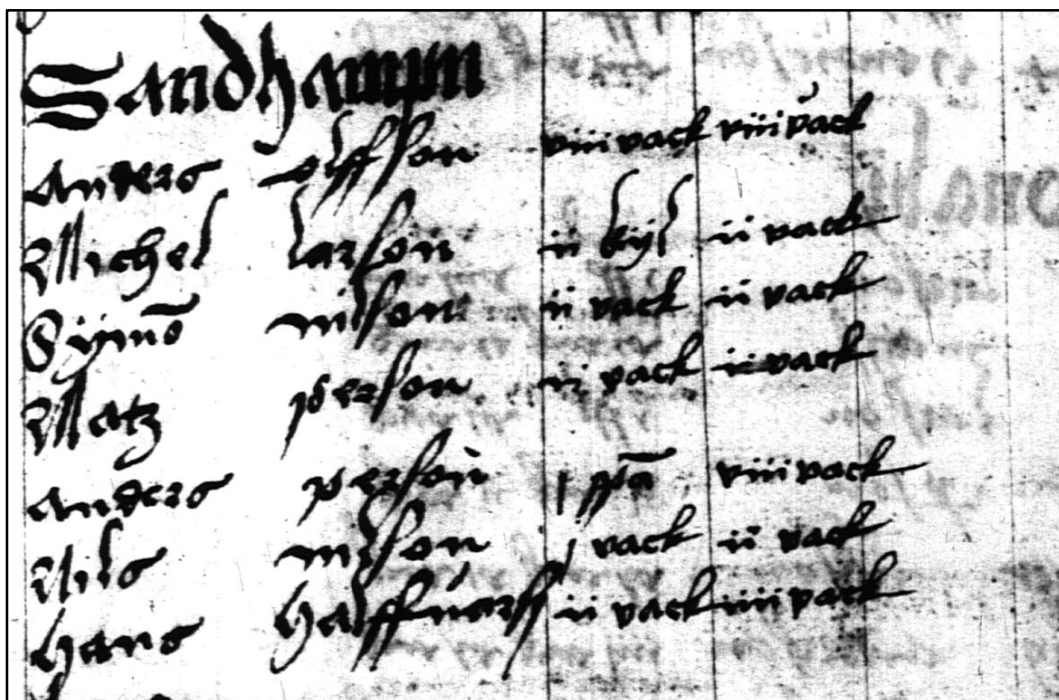 Sandhampn
Anders olffson viii vack viii vack
Michel larson ii ii vack
Symo̅ nilson ii vack ii vack
Matz person ii vack ii vack
Anders person j ppa̅ viii vack
Nils nilson j vack ii vack
Hans halffuarff ii vack iiii vack